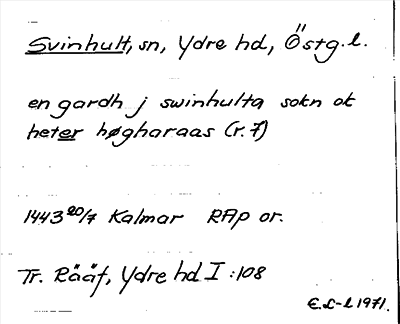 Svinhult, sn, Ydre hd, Östg.l.
en gardh j swinhulta sokn ok
heter høgharaas (r. 7)
1443 20/7 Kalmar RAp or.
Tr. Rääf, Ydre hd I:108
E.L-l 1971.